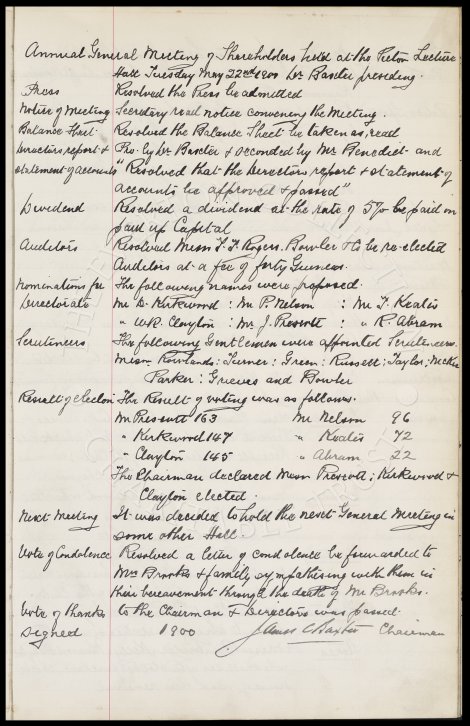 Annual General Meeting of Shareholders held at the Picton Lecture
Hall Tuesday May 22nd 1900 Dr Baxter presiding.
Press Resolved the Press be admitted
Notice of Meeting Secretary read notice convening the Meeting.
Balance Sheet Resolved the Balance Sheet be taken as read
Directors report & Pro. by Dr Baxter & seconded by Mr Benedict and
statement of accounts "Resolved that the Directors report & statement of
accounts be approved & passed"
Dividend Resolved a dividend at the rate of 5% be paid on
paid up Capital
Auditors Resolved Messrs T. T. Rogers. Bowler & Co be re-elected
Auditors at a fee of forty Guineas.
Nominations for The following names were proposed.
Directorate Mr D. Kirkwood : Mr P. Nelson : Mr T. Keates
" W.R. Clayton : Mr J. Prescott : " R. Abram
Scrutineers The following Gentlemen were appointed Scrutineers.
Messrs Rowlands: Turner: Green: Russell: Taylor;
Parker: Greeves and Bowler
Result of election The Result of voting was as follows.
Mr Prescott 163 Mr Nelson 96
" Kirkwood 147 " Keates 72
" Clayton 145 " Abram 22
The Chairman declared Messrs Prescott; Kirkwood &
Clayton elected.
Next Meeting It was decided to hold the next General Meeting in
some other Hall.
Vote of Condolence Resolved a letter of condolence be forwarded to
Mrs Brooks & family sympathising with them in
their bereavement through the death of Mr Brooks.
Vote of thanks to the Chairman & Directors was passed.
Signed 1900 James C Baxter Chairman